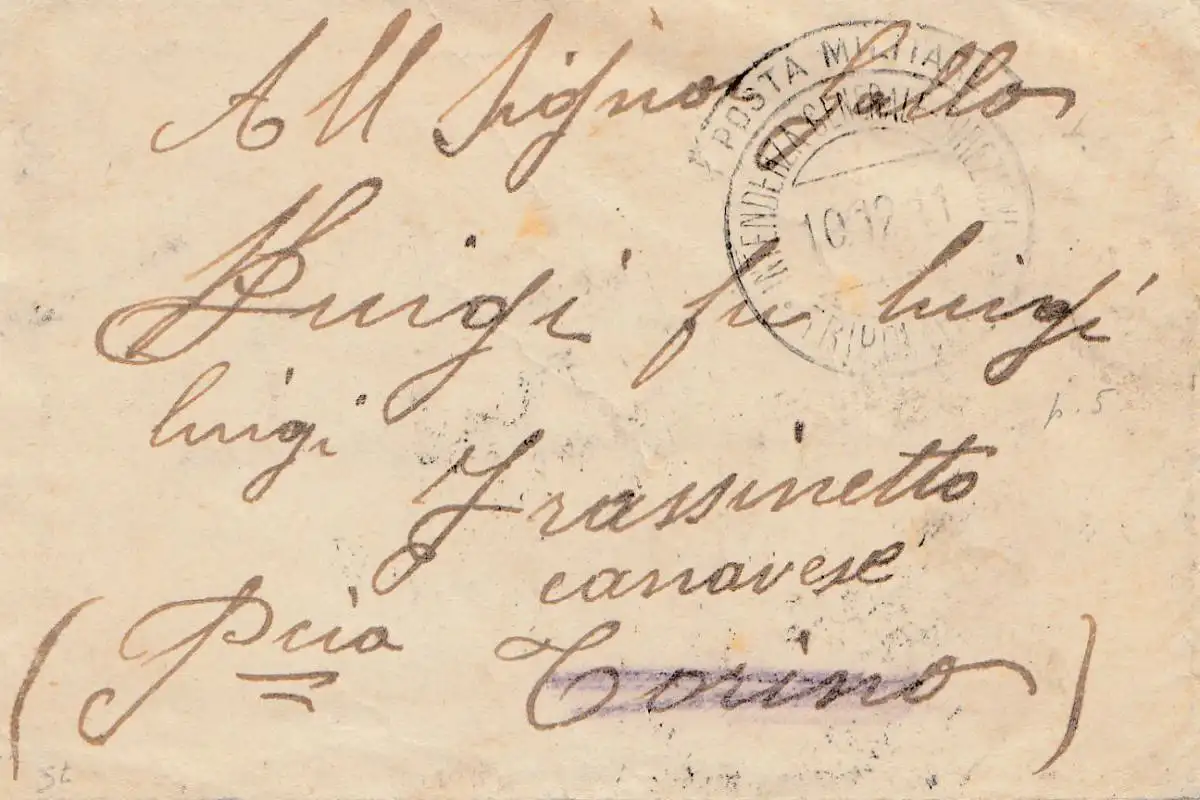 All Signor Gallo
Luigi fu luigi
luigi
Frassinetto
canavese
(Pcia Torino)
POSTA MILITARE
INTENDENZA GENERALE
10.12.11
TRIPOLI
p.5
St